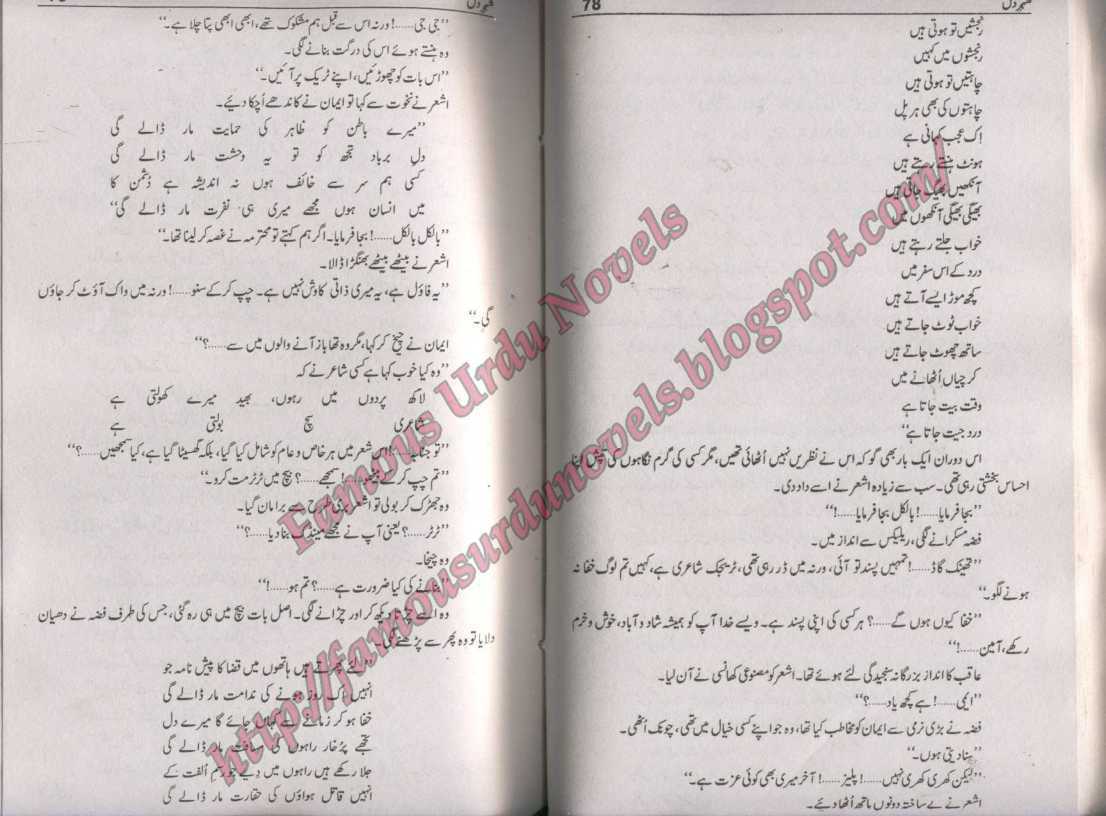 78
رنجشیں تو ہوتی ہیں
رنجشوں میں کہیں
چاہتیں تو ہوتی ہیں
چاہتوں کی بھی ہر پل
اِک عجب کہانی ہے
ہونٹ ہنستے رہتے ہیں
آنکھیں بھیگ جاتی ہیں
بھیگی بھیگی آنکھوں میں
خواب جلتے رہتے ہیں
درد کے اس سفر میں
کچھ موڑ ایسے آتے ہیں
خواب ٹوٹ جاتے ہیں
ساتھ چھوٹ جاتے ہیں
کرچیاں اُٹھانے میں
وقت بیت جاتا ہے
درد جیت جاتا ہے‘‘
اس دوران ایک بار بھی گو کہ اس نے نظریں نہیں اُٹھائی تھیں، مگر کسی کی گرم نگاہوں کی تپش اپنا
احساس بخشتی رہی تھی۔ سب سے زیادہ اشعر نے اسے داد دی۔
’’بجا فرمایا......! بالکل بجا فرمایا......!‘‘
فضہ مسکرانے لگی، ریلیکس سے انداز میں۔
’’تھینک گاڈ......! تمہیں پسند تو آئی، ورنہ میں ڈر رہی تھی، ٹریجک شاعری ہے، کہیں تم لوگ خفا نہ
ہونے لگو۔‘‘
’’خفا کیوں ہوں گے......؟ ہر کسی کی اپنی پسند ہے۔ ویسے خدا آپ کو ہمیشہ شاد و آباد، خوش و خرم
رکھے، آمین......!‘‘
عاقب کا انداز بزرگانہ سنجیدگی لئے ہوئے تھا۔ اشعر کو مصنوعی کھانسی نے آن لیا۔
’’ایمی......! ہے کچھ یاد......؟‘‘
فضہ نے بڑی نرمی سے ایمان کو مخاطب کیا تھا، وہ جو اپنے کسی خیال میں تھی، چونک اُٹھی۔
’’سنا دیتی ہوں۔‘‘
’’لیکن کھری کھری نہیں......! پلیز......! آخر میری بھی کوئی عزت ہے۔‘‘
اشعر نے بے ساختہ دونوں ہاتھ اُٹھا دیئے۔
’’جی جی......! ورنہ اس سے قبل ہم مشکوک تھے، ابھی ابھی پتا چلا ہے۔‘‘
وہ ہنستے ہوئے اس کی درگت بنانے لگی۔
’’اس بات کو چھوڑئیں، اپنے ٹریک پر آئیں۔‘‘
اشعر نے نخوت سے کہا تو ایمان نے کاندھے اُچکا دیئے۔
’’میرے باطن کو ظاہر کی حمایت مار ڈالے گی
دلِ برباد تجھ کو تو یہ وحشت مار ڈالے گی
کسی ہم سر سے خائف ہوں نہ اندیشہ ہے دُشمن کا
میں انسان ہوں مجھے میری ہی نفرت مار ڈالے گی‘‘
’’بالکل بالکل......! بجا فرمایا۔ اگر ہم کہتے تو محترمہ نے غصہ کر لینا تھا۔‘‘
اشعر نے بیٹھے بیٹھے بھنگڑا ڈالا۔
’’یہ فاؤل ہے، یہ میری ذاتی کاوش نہیں ہے۔ چپ کر کے سنو......! ورنہ میں واک آؤٹ کر جاؤں
گی۔‘‘
ایمان نے چیخ کر کہا، مگر وہ تھا باز آنے والوں میں سے......؟‘‘
’’وہ کیا خوب کہا ہے کسی شاعر نے کہ
لاکھ پردوں میں رہوں، بھید میرے کھولتی ہے
شاعری سچ بولتی ہے
’’تو جناب......! اس شعر میں ہر خاص و عام کو شامل کیا گیا، بلکہ گھسیٹا گیا ہے، کیا سمجھیں......؟‘‘
’’تم چپ کر کے بیٹھو......! سمجھے......؟ بیچ میں ٹرٹر مت کرو۔‘‘
وہ جھڑک کر بولی تو اشعر بری طرح سے برا مان گیا۔
’’ٹرٹر......؟ یعنی آپ نے مجھے مینڈک بنا دیا......؟‘‘
وہ چیخا۔
’’بنانے کی کیا ضرورت ہے......؟ تم ہو......!‘‘
وہ اسے چڑتا دیکھ کر اور چڑانے لگی۔ اصل بات بیچ میں ہی رہ گئی، جس کی طرف فضہ نے دھیان
دلایا تو وہ پھر سے پڑھنے لگی۔
’’لئے پھرتے ہیں ہاتھوں میں قضا کا پیش نامہ جو
انہیں اِک روز ہونے کی ندامت مار ڈالے گی
خفا ہو کر زمانے سے کہاں جائے گا میرے دل
تجھے پرخار راہوں کی مسافت مار ڈالے گی
جلا رکھے ہیں راہوں میں دیے جو رسمِ اُلفت کے
انہیں قاتل ہواؤں کی حقارت مار ڈالے گی
Famous Urdu Novels
http://famousurdunovels.blogspot.com/